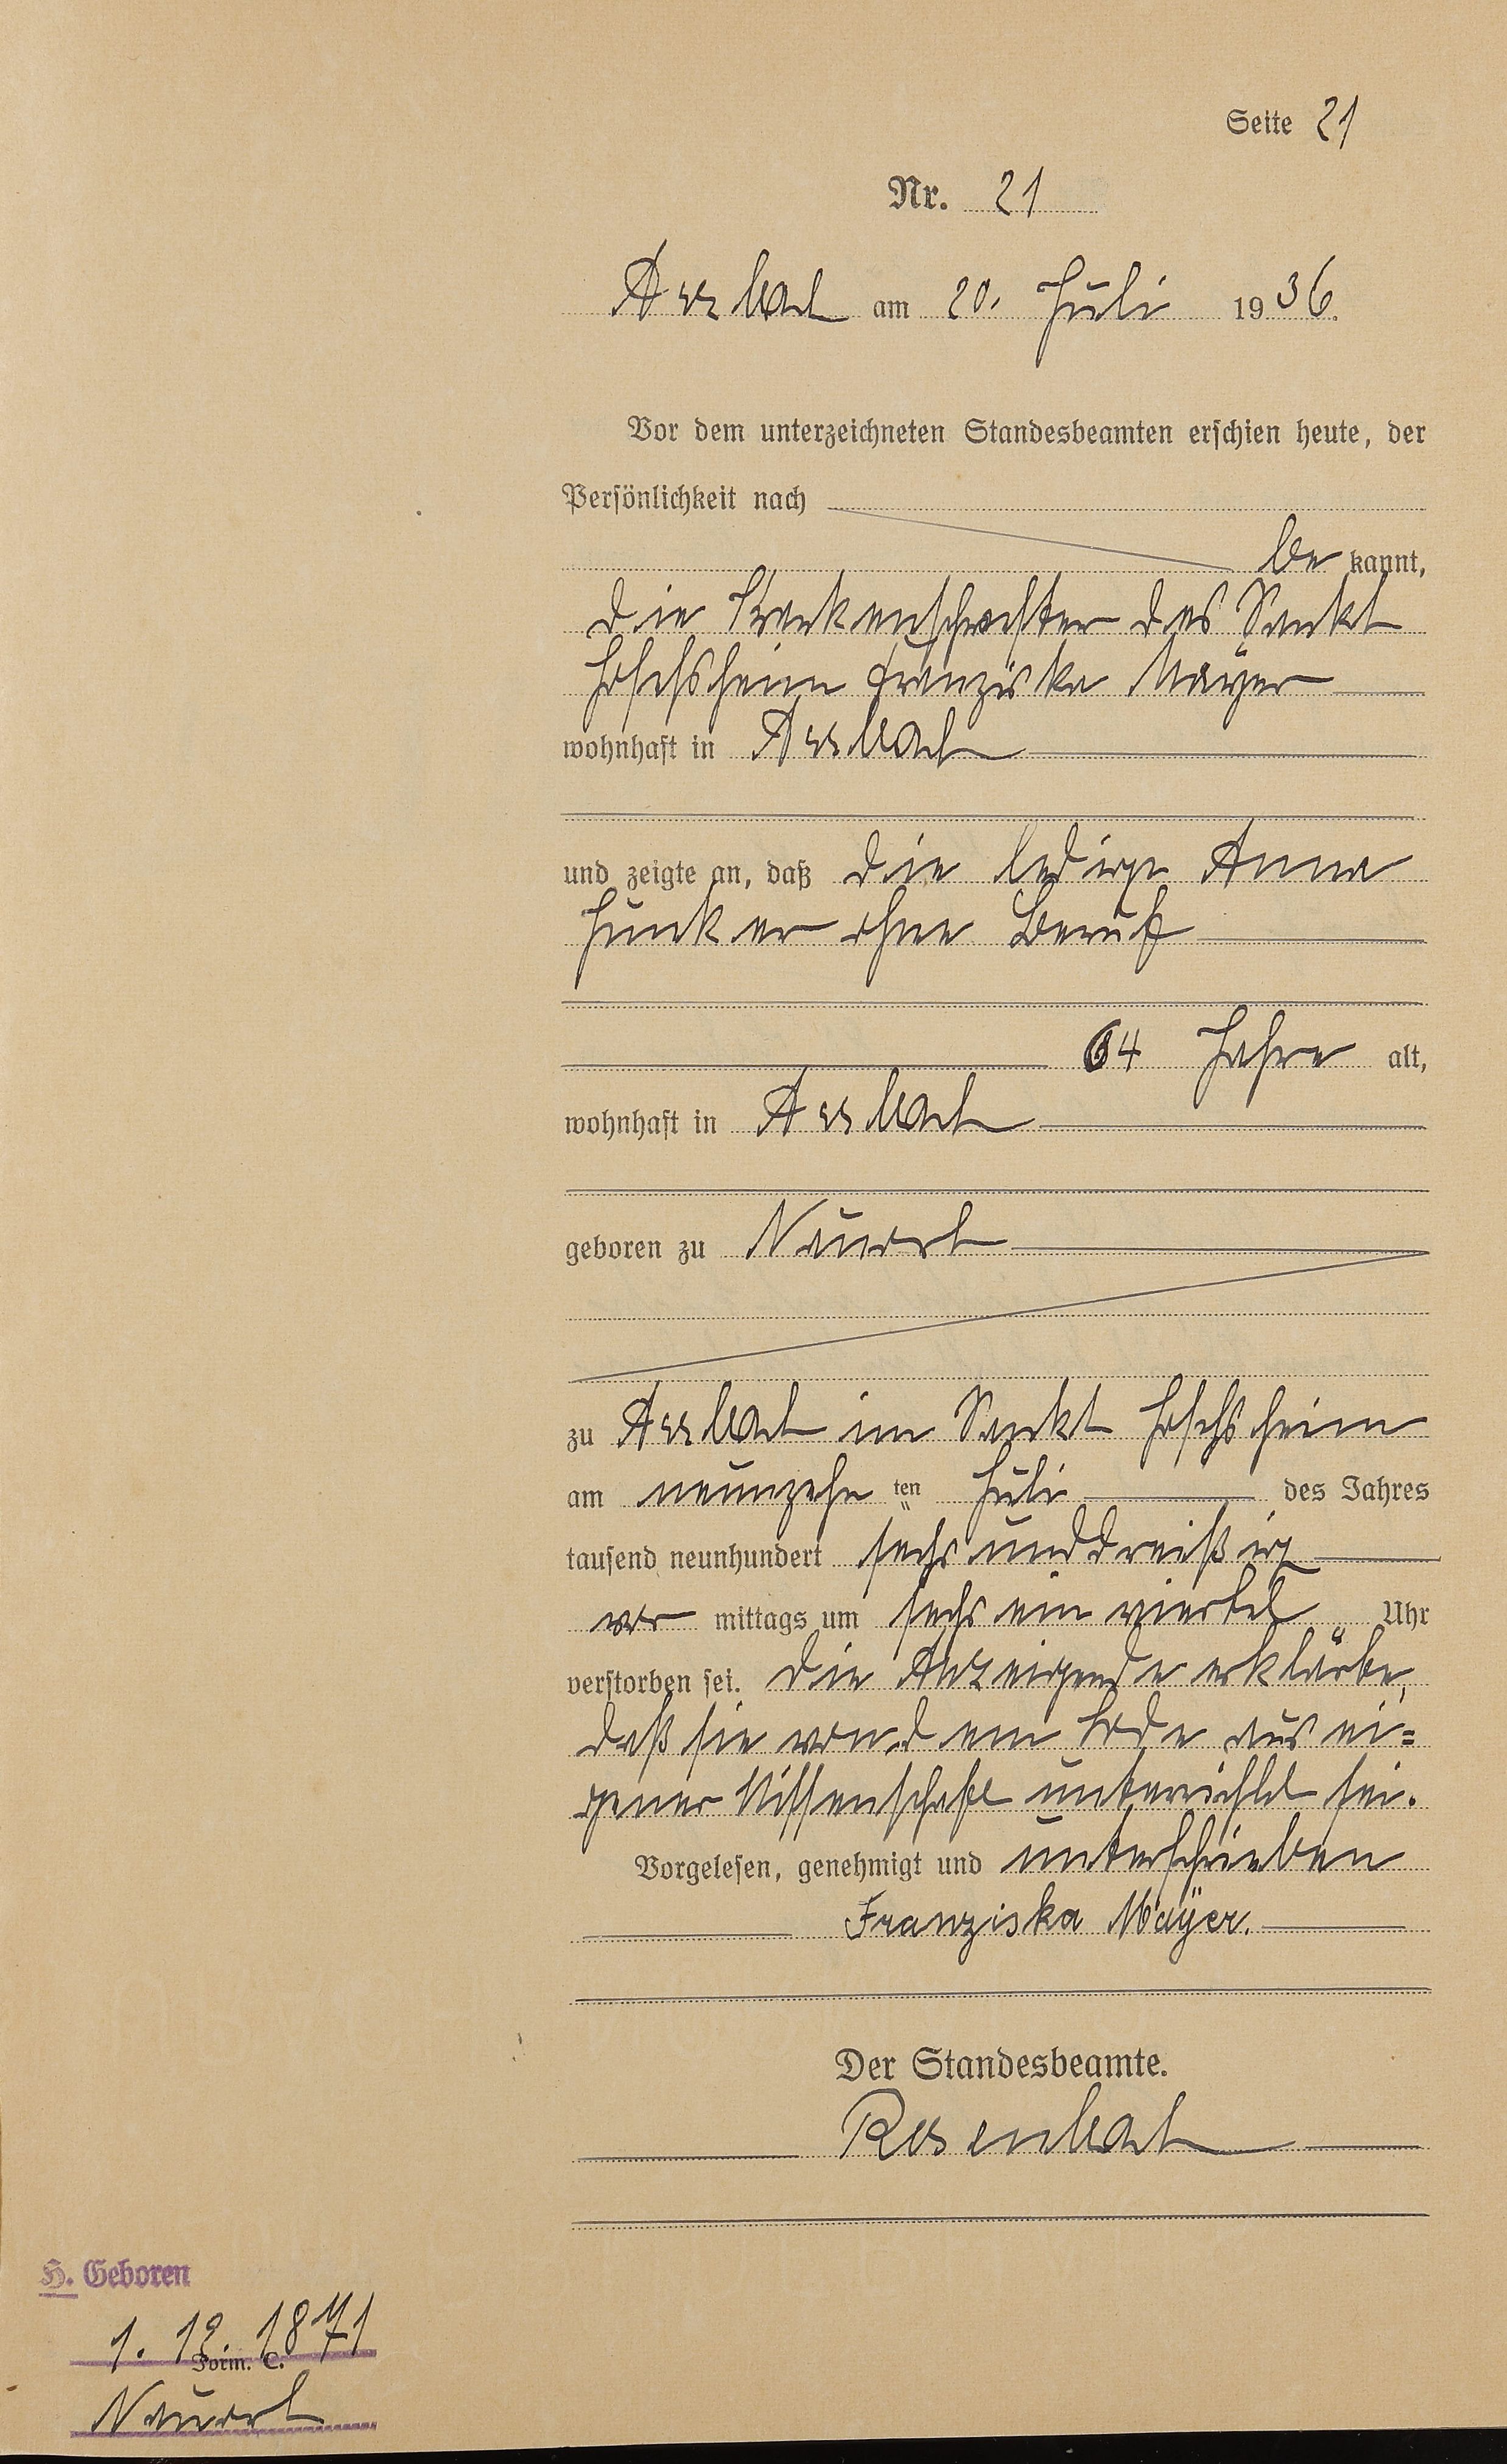 Seite 21
Nr. 21
Arzbach am 20. Juli 1936.
Vor dem unterzeichneten Standesbeamten erschien heute, der
Persönlichkeit nach
be kannt,
die Krankenschwester des Sankt
Josefsheim Franziska Mayer
wohnhaft in Arzbach
und zeigte an, daß die ledige Anna
Junker ohne Beruf
64 Jahre alt,
wohnhaft in Arzbach
geboren zu Nauort
zu Arzbach im Sankt Josefsheim
am neunzehn ten Juli des Jahres
tausend neunhundert sechsunddreißig
vor mittags um sechs ein viertel Uhr
verstorben sei. Die Anzeigende erklärte,
daß sie von dem Tode aus ei=
gener Wissenschaft unterrichtet sei.
Vorgelesen, genehmigt und unterschrieben
Franziska Mayer.
Der Standesbeamte.
Rosenbach
H. Geboren
1. 12. 1871
Form. C.
Nauort